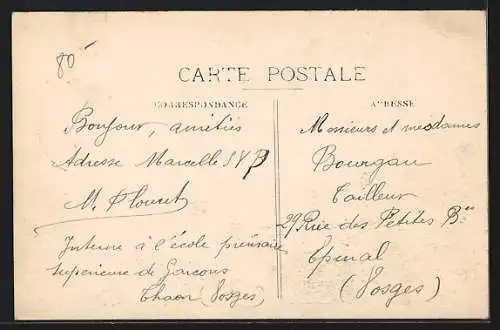 80-
CARTE POSTALE
CORRESPONDANCE
Bonjour, amitiés
Adresse Marcelle SVP
M.
Interne à l'école primaire
Supérieure de Garçons
Thaon (Vosges)
ADRESSE
Messieurs et mesdames
Bourgau
Tailleur
29 Rue des Petites Bies
Epinal
(Vosges)